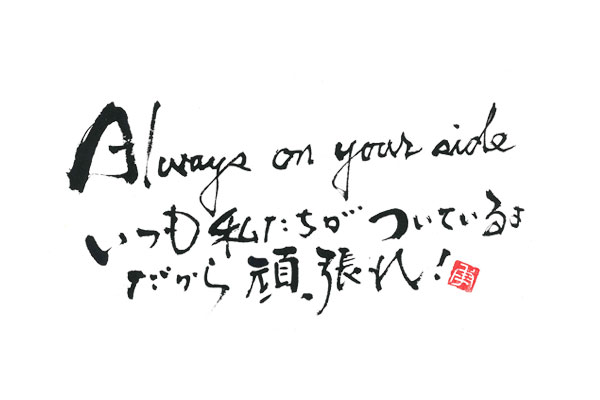 Always on your side
いつも私たちがついているよ
だから頑張れ!